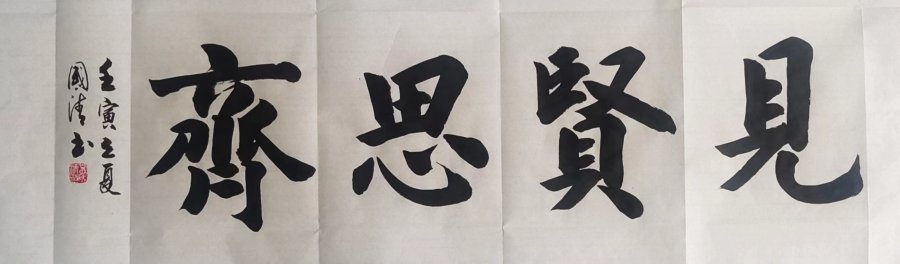 見賢思齊
壬寅之夏
國清书